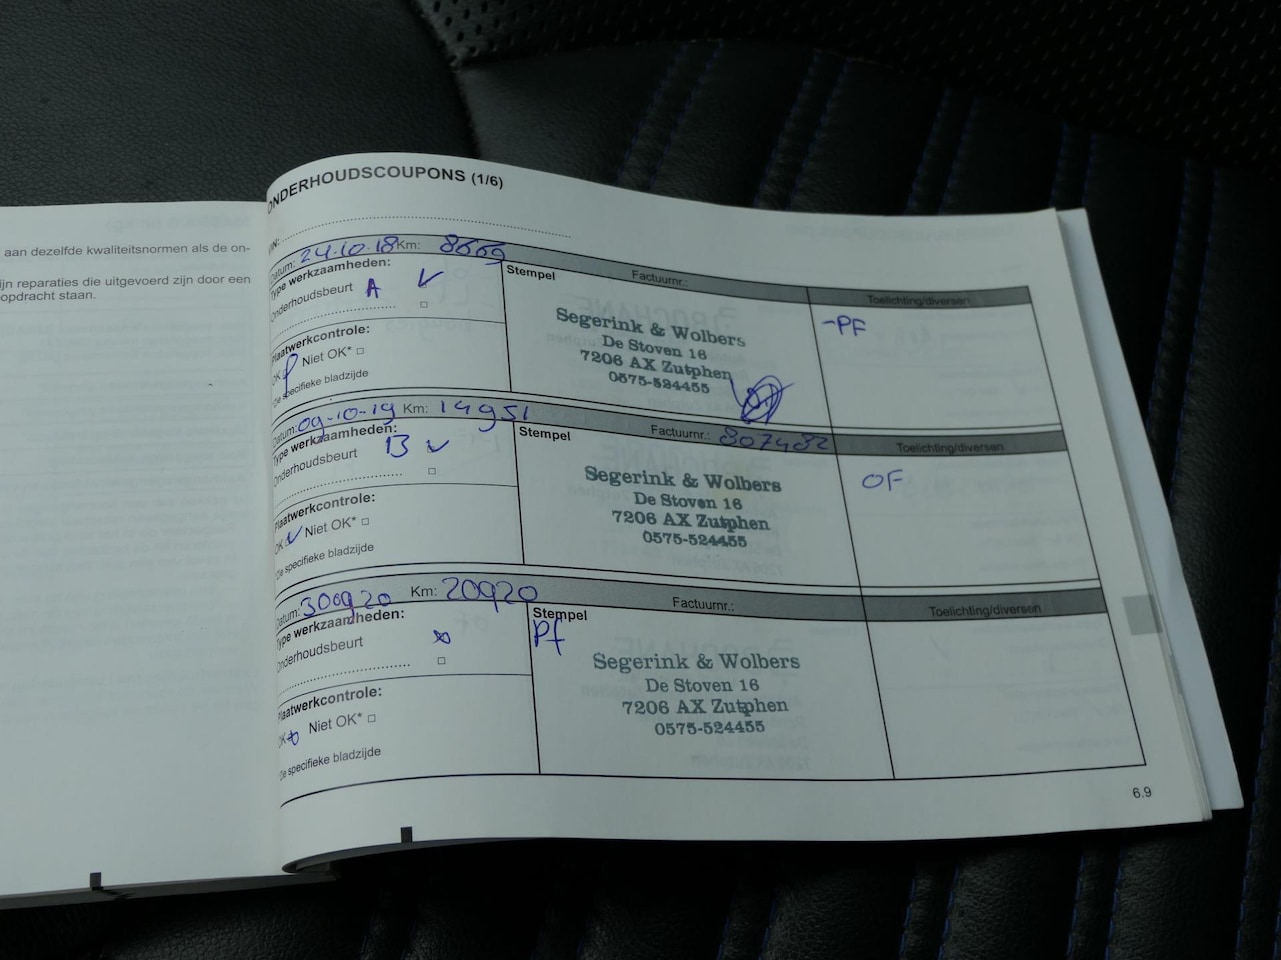 aan dezelfde kwaliteitsnormen als de on-
ijn reparaties die uitgevoerd zijn door een
opdracht staan.
ONDERHOUDSCOUPONS (1/6)
VIN:
Datum: 24-10-18 Km: 8669
Type werkzaamheden:
Onderhoudsbeurt A
Plaatwerkcontrole:
OK Niet OK*
*Zie specifieke bladzijde
Stempel
Factuurnr.:
Segerink & Wolbers
De Stoven 16
7206 AX Zutphen
0575-524455
Toelichting/diversen
-PF
Datum: 09-10-19 Km: 14951
Type werkzaamheden:
Onderhoudsbeurt B
Plaatwerkcontrole:
OK Niet OK*
*Zie specifieke bladzijde
Stempel
Factuurnr.: 807482
Segerink & Wolbers
De Stoven 16
7206 AX Zutphen
0575-524455
Toelichting/diversen
OF
Datum: 300920 Km: 20920
Type werkzaamheden:
Onderhoudsbeurt
Plaatwerkcontrole:
OK Niet OK*
*Zie specifieke bladzijde
Stempel
Factuurnr.:
Pf
Segerink & Wolbers
De Stoven 16
7206 AX Zutphen
0575-524455
Toelichting/diversen
6.9